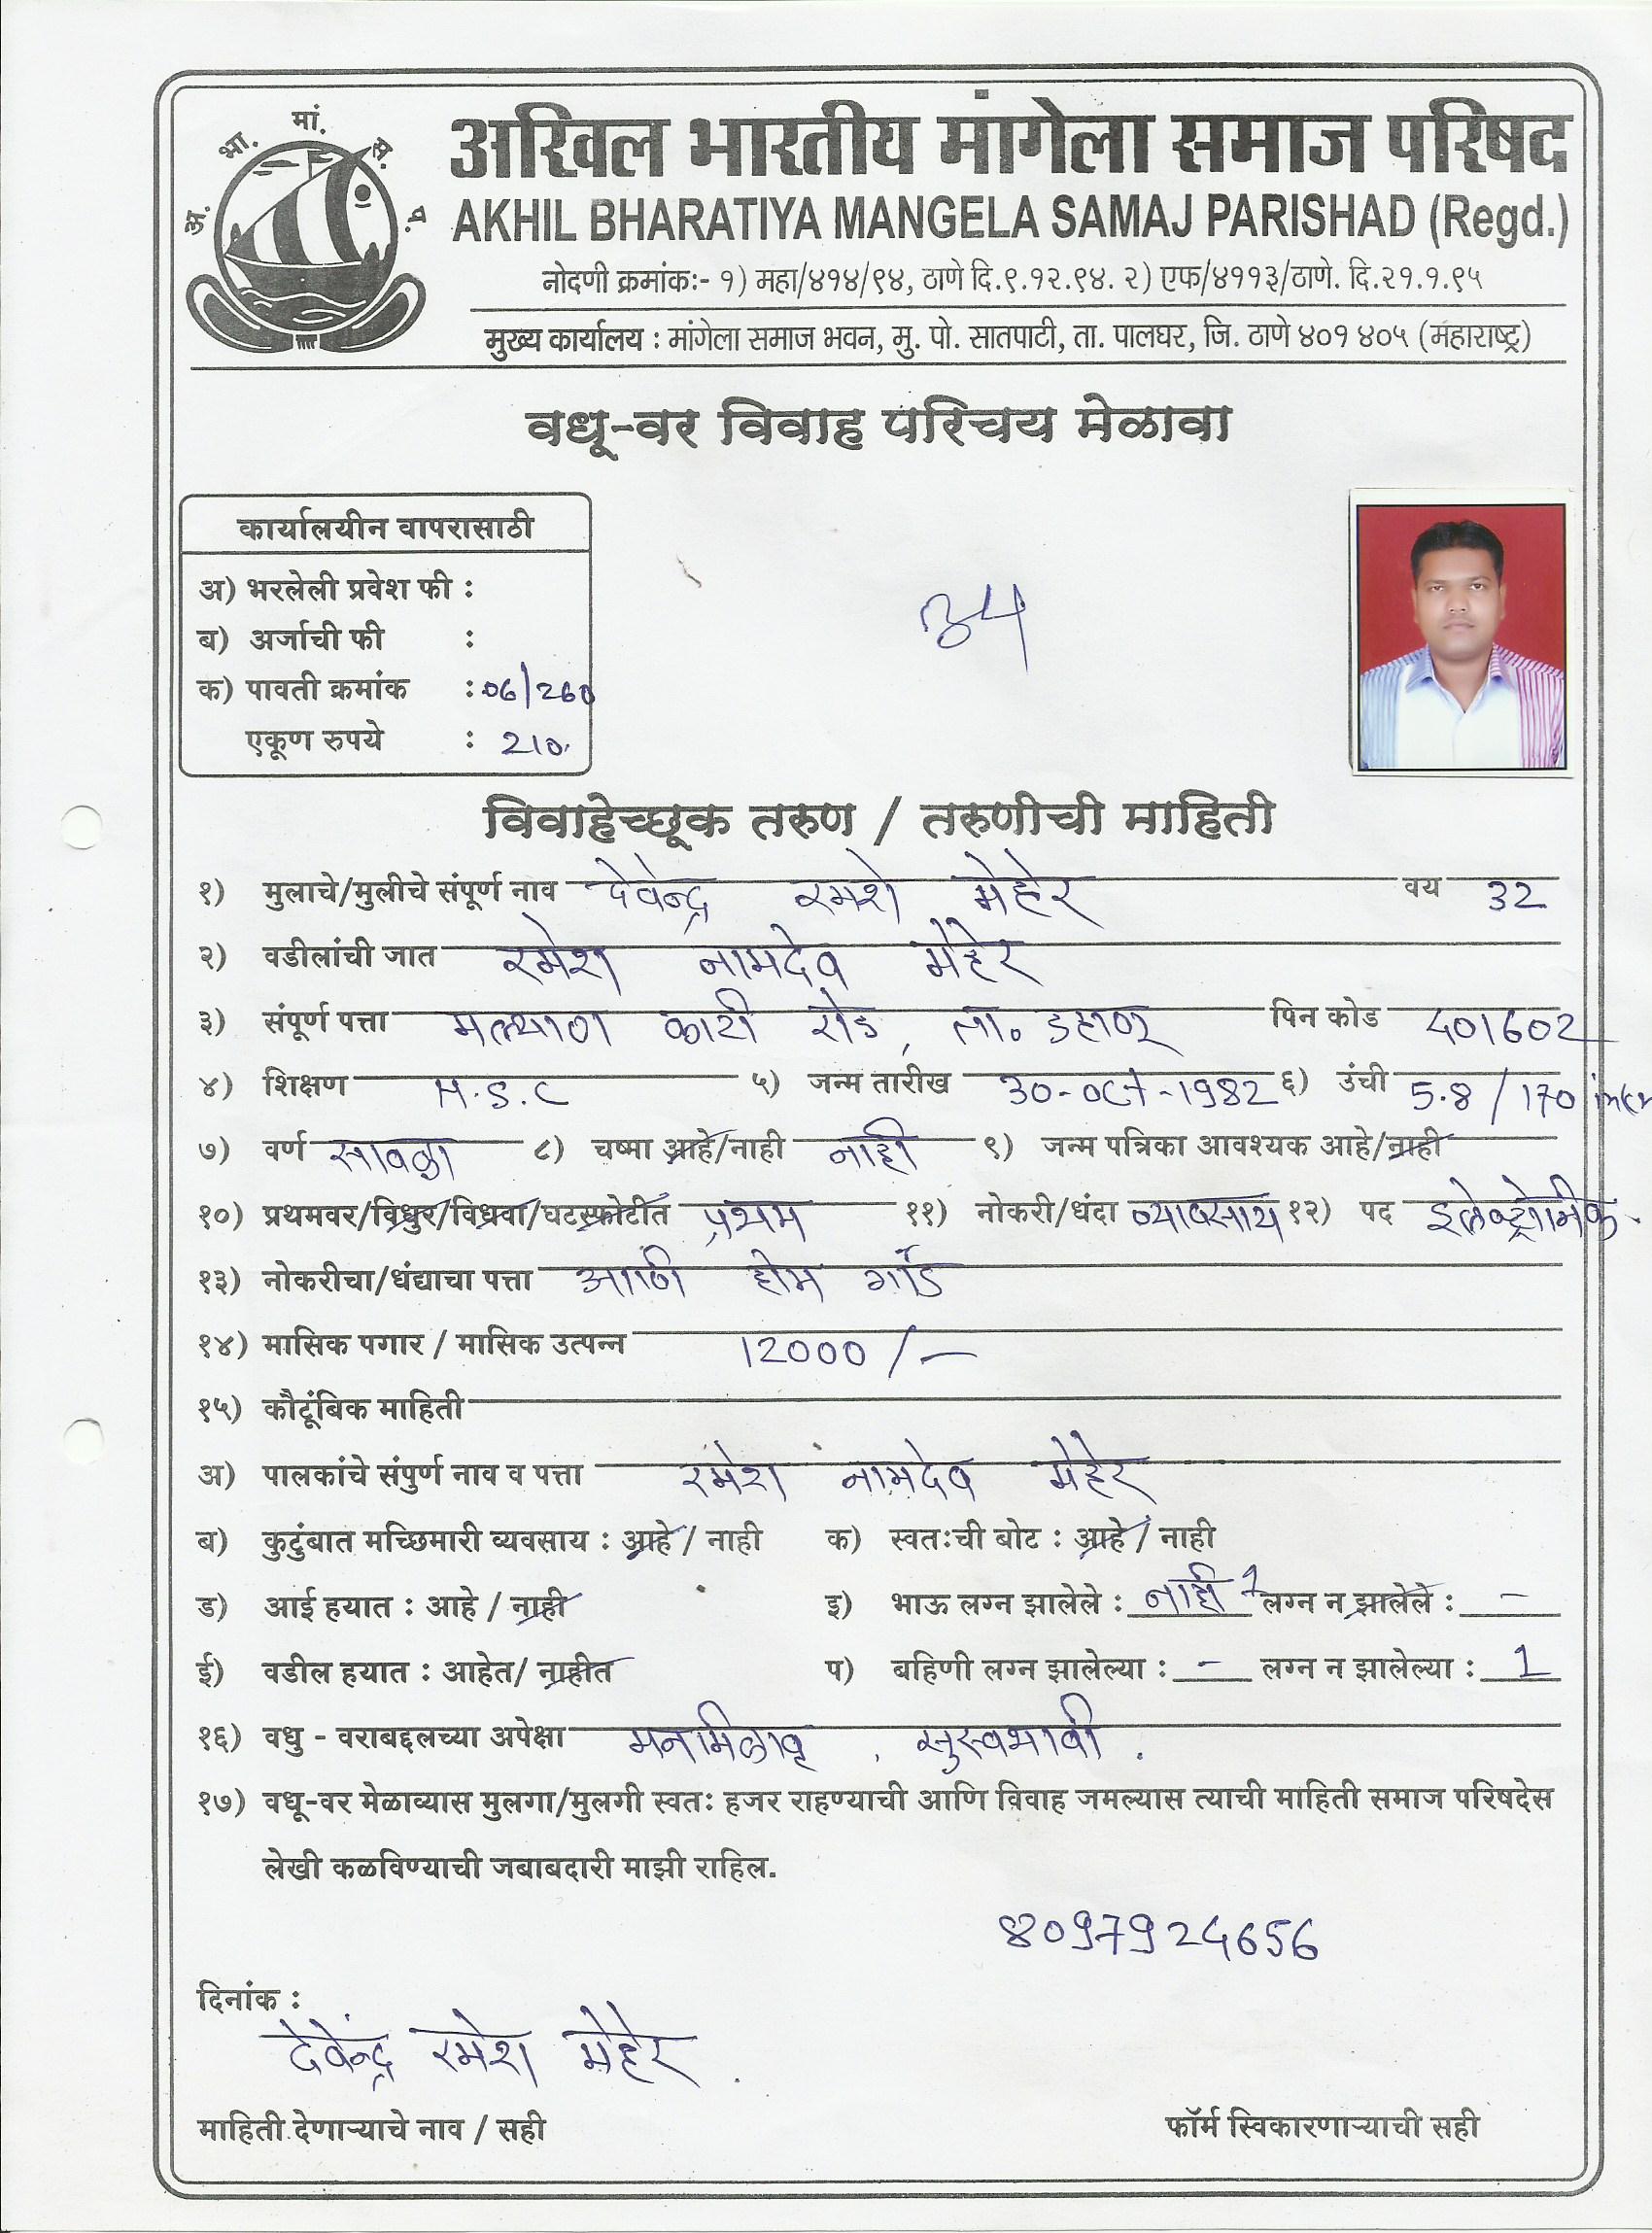 अ. भा. मां. स. प.
अखिल भारतीय मांगेला समाज परिषद
AKHIL BHARATIYA MANGELA SAMAJ PARISHAD (Regd.)
नोदणी क्रमांकः- १) महा/४१४/९४, ठाणे दि.९.१२.९४. २) एफ/४११३/ठाणे. दि.२१.१.९५
मुख्य कार्यालय : मांगेला समाज भवन, मु. पो. सातपाटी, ता. पालघर, जि. ठाणे ४०१ ४०५ (महाराष्ट्र)
वधू-वर विवाह परिचय मेळावा
कार्यालयीन वापरासाठी
अ) भरलेली प्रवेश फी :
ब) अर्जाची फी :
क) पावती क्रमांक : 06/260
एकूण रुपये : 210.
विवाहेच्छूक तरुण / तरुणीची माहिती
१) मुलाचे/मुलीचे संपूर्ण नाव देवेन्द्र रमेश मेहेर वय 32
२) वडीलांची जात रमेश नामदेव मेहेर
३) संपूर्ण पत्ता मल्याण काटी रोड, ता. डहाणू पिन कोड 401602
४) शिक्षण H.S.C ५) जन्म तारीख 30-OCT-1982 ६) उंची 5.8 / 170
७) वर्ण सावळा ८) चष्मा आहे/नाही नाही ९) जन्म पत्रिका आवश्यक आहे/नाही
१०) प्रथमवर/विधुर/विधवा/घटस्फोटीत प्रथम ११) नोकरी/धंदा व्यावसाय १२) पद
१३) नोकरीचा/धंद्याचा पत्ता होम गार्ड
१४) मासिक पगार / मासिक उत्पन्न 12000/-
१५) कौटूंबिक माहिती
अ) पालकांचे संपुर्ण नाव व पत्ता रमेश नामदेव मेहेर
ब) कुटुंबात मच्छिमारी व्यवसाय : आहे / नाही क) स्वतःची बोट : आहे / नाही
ड) आई हयात : आहे / नाही इ) भाऊ लग्न झालेले : नाही 1 लग्न न झालेले : -
ई) वडील हयात : आहेत/ नाहीत प) बहिणी लग्न झालेल्या : - लग्न न झालेल्या : 1
१६) वधु - वराबद्दलच्या अपेक्षा मनमिळावू , सुस्वभावी .
१७) वधू-वर मेळाव्यास मुलगा/मुलगी स्वतः हजर राहण्याची आणि विवाह जमल्यास त्याची माहिती समाज परिषदेस
लेखी कळविण्याची जबाबदारी माझी राहिल.
8097924656
दिनांक :
देवेंन्द्र रमेश मेहेर .
माहिती देणाऱ्याचे नाव / सही फॉर्म स्विकारणाऱ्याची सही